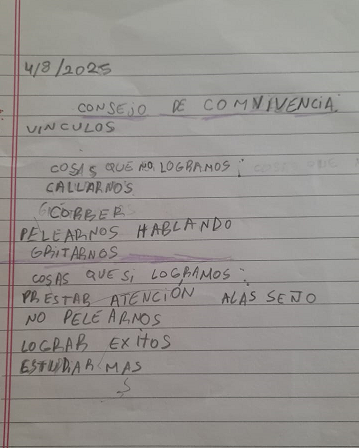 4/8/2025
CONSEJO DE COMNVIVENCIA.
VINCULOS
COSAS QUE NO LOGRAMOS:
CALLARNOS
CORRER
PELEARNOS HABLANDO
GRITARNOS
COSAS QUE SI LOGRAMOS:
PRESTAR ATENCIÓN ALAS SEÑO
NO PELEARNOS
LOGRAR EXITOS
ESTUDIAR MAS